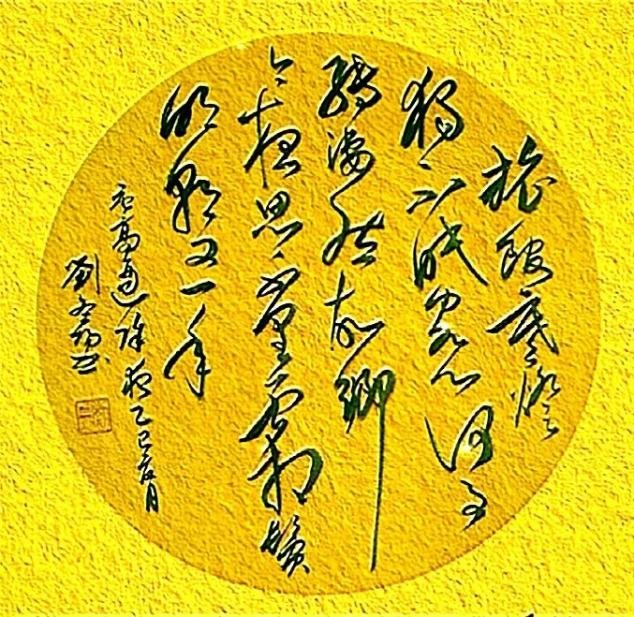 旅館寒燈
獨不眠客心何事
轉淒然故鄉
今夜思千里霜鬢
明朝又一年
高適除夜乙巳月
劉書